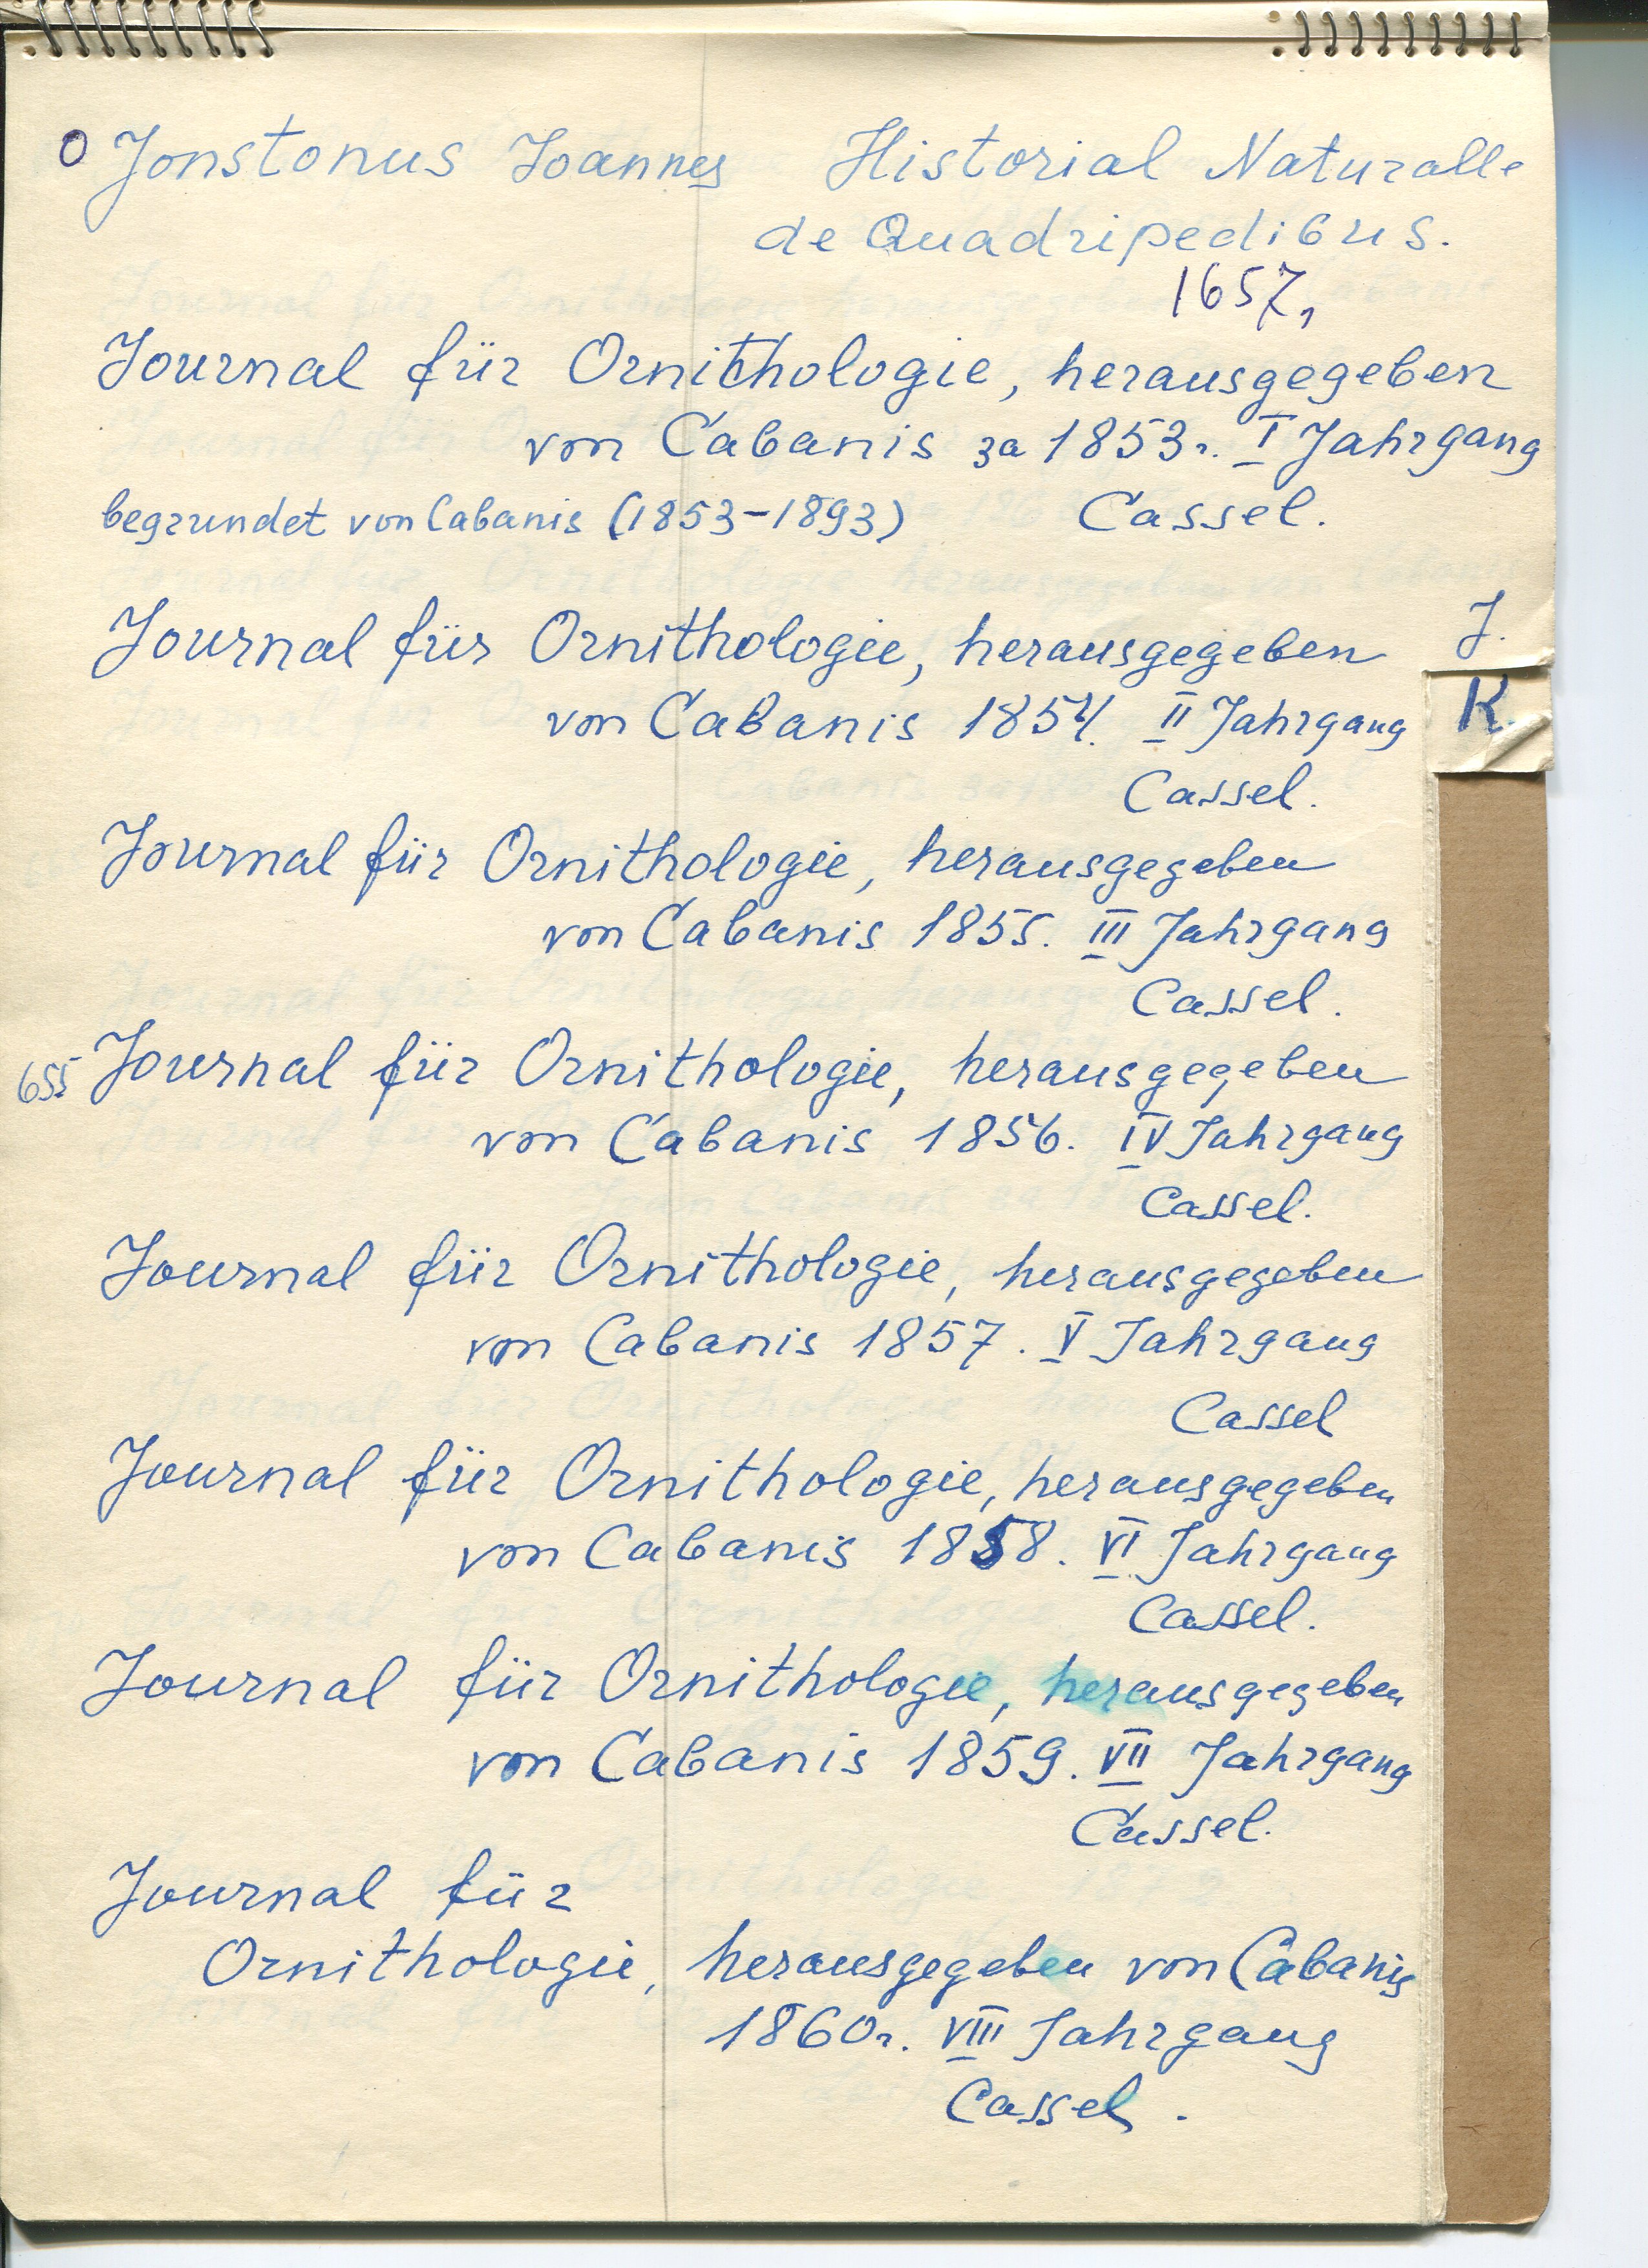 O Jonstonus Joannes Historial Naturalle
de Quadripedibus.
1657,
Journal für Ornithologie, herausgegeben
von Cabanis за 1853г. I Jahrgang
begrundet von Cabanis (1853-1893) Cassel.
Journal für Ornithologie, herausgegeben
J.
von Cabanis 1854. II Jahrgang
K.
Cassel.
Journal für Ornithologie, herausgegeben
von Cabanis 1855. III Jahrgang
Cassel.
655 Journal für Ornithologie, herausgegeben
von Cabanis 1856. IV Jahrgang
Cassel.
Journal für Ornithologie, herausgegeben
von Cabanis 1857. V Jahrgang
Cassel
Journal für Ornithologie, herausgegeben
von Cabanis 1858. VI Jahrgang
Cassel.
Journal für Ornithologie, herausgegeben
von Cabanis 1859. VII Jahrgang
Cassel.
Journal für
Ornithologie, herausgegeben von Cabanis
1860г. VIII Jahrgang
Cassel.